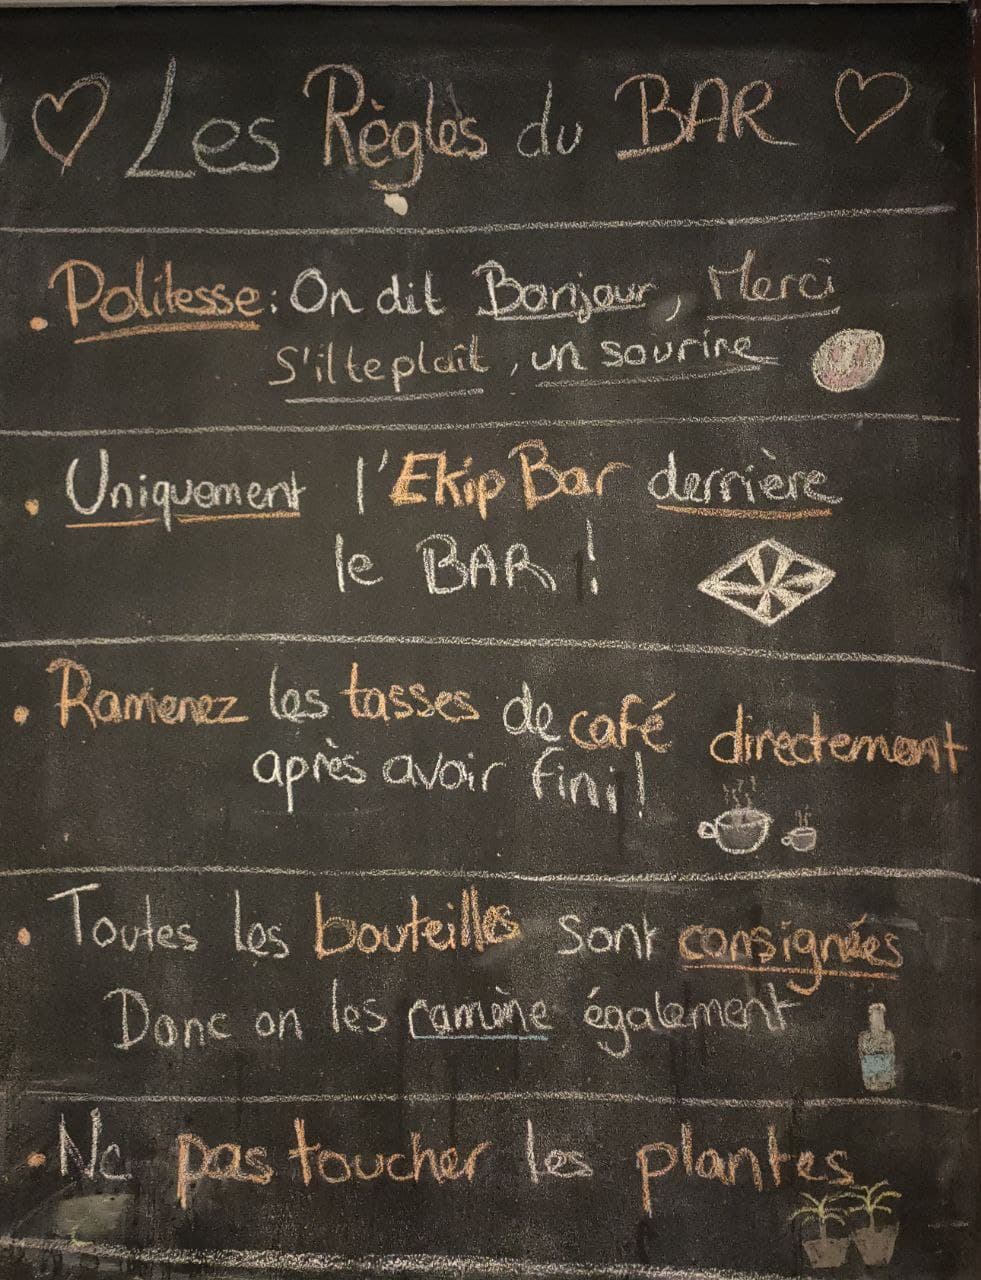 Les Règles du BAR
• Politesse : On dit Bonjour, Merci
S'il te plaît, un sourire
• Uniquement l'Ekip Bar derrière
le BAR !
• Ramenez les tasses de café directement
après avoir fini !
• Toutes les bouteilles sont consignées
Donc on les ramène également
• Ne pas toucher les plantes